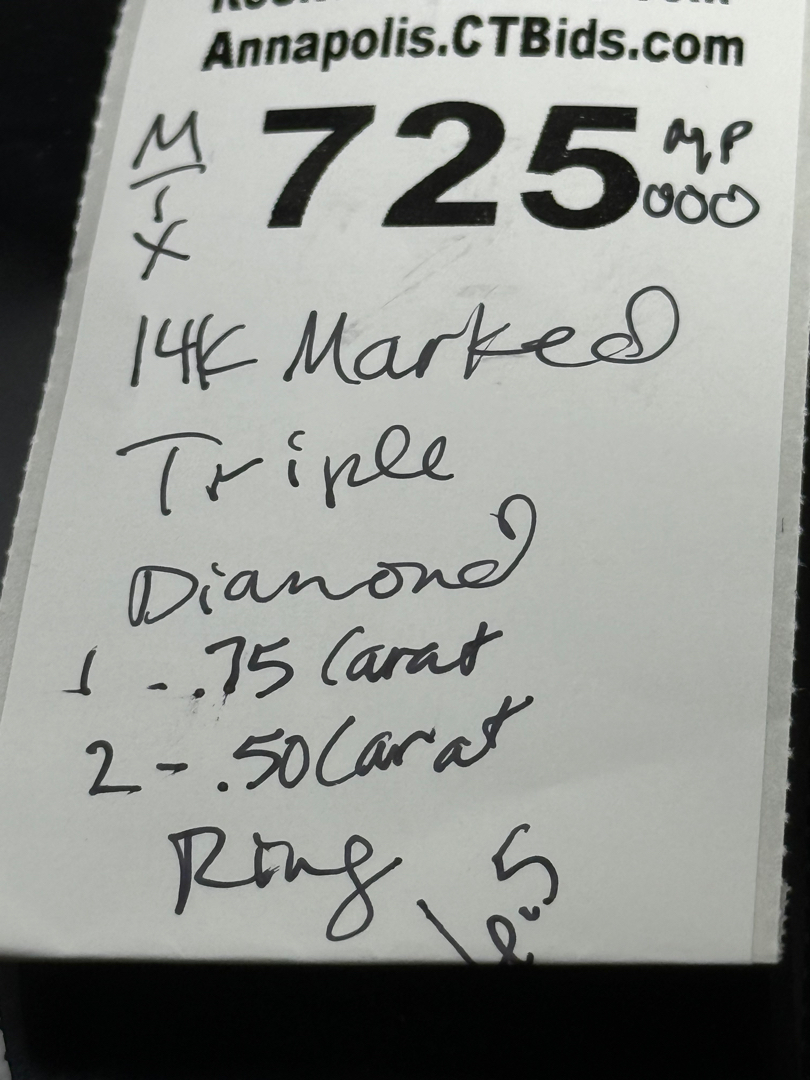 Annapolis.CTBids.com
M
I
X
725
MP
000
14K Marked
Triple
Diamond
1 - .75 Carat
2 - .50 Carat
Ring